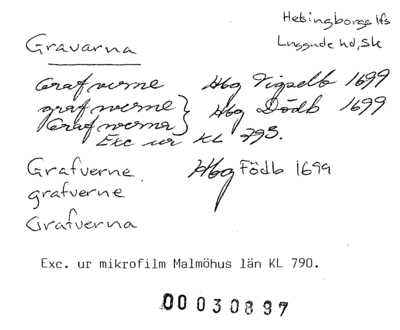 Helsingborgs lfs
Luggude hd, Sk
Gravarna
Grafverne Hbg Vigselb 1699
grafwerne } Hbg Dödb 1699
Grafwerna
Exc ur KL 793.
Grafverne. Hbg Födb 1699
grafverne
Grafverna
Exc. ur mikrofilm Malmöhus län KL 790.
00030897